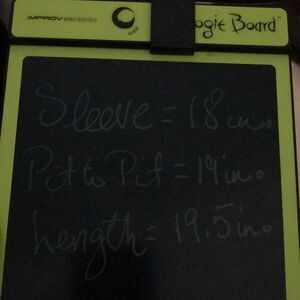 IMPROV electronics Boogie Board™
Sleeve = 18 in.
Pit to Pit = 19 in.
Length = 19.5 in.